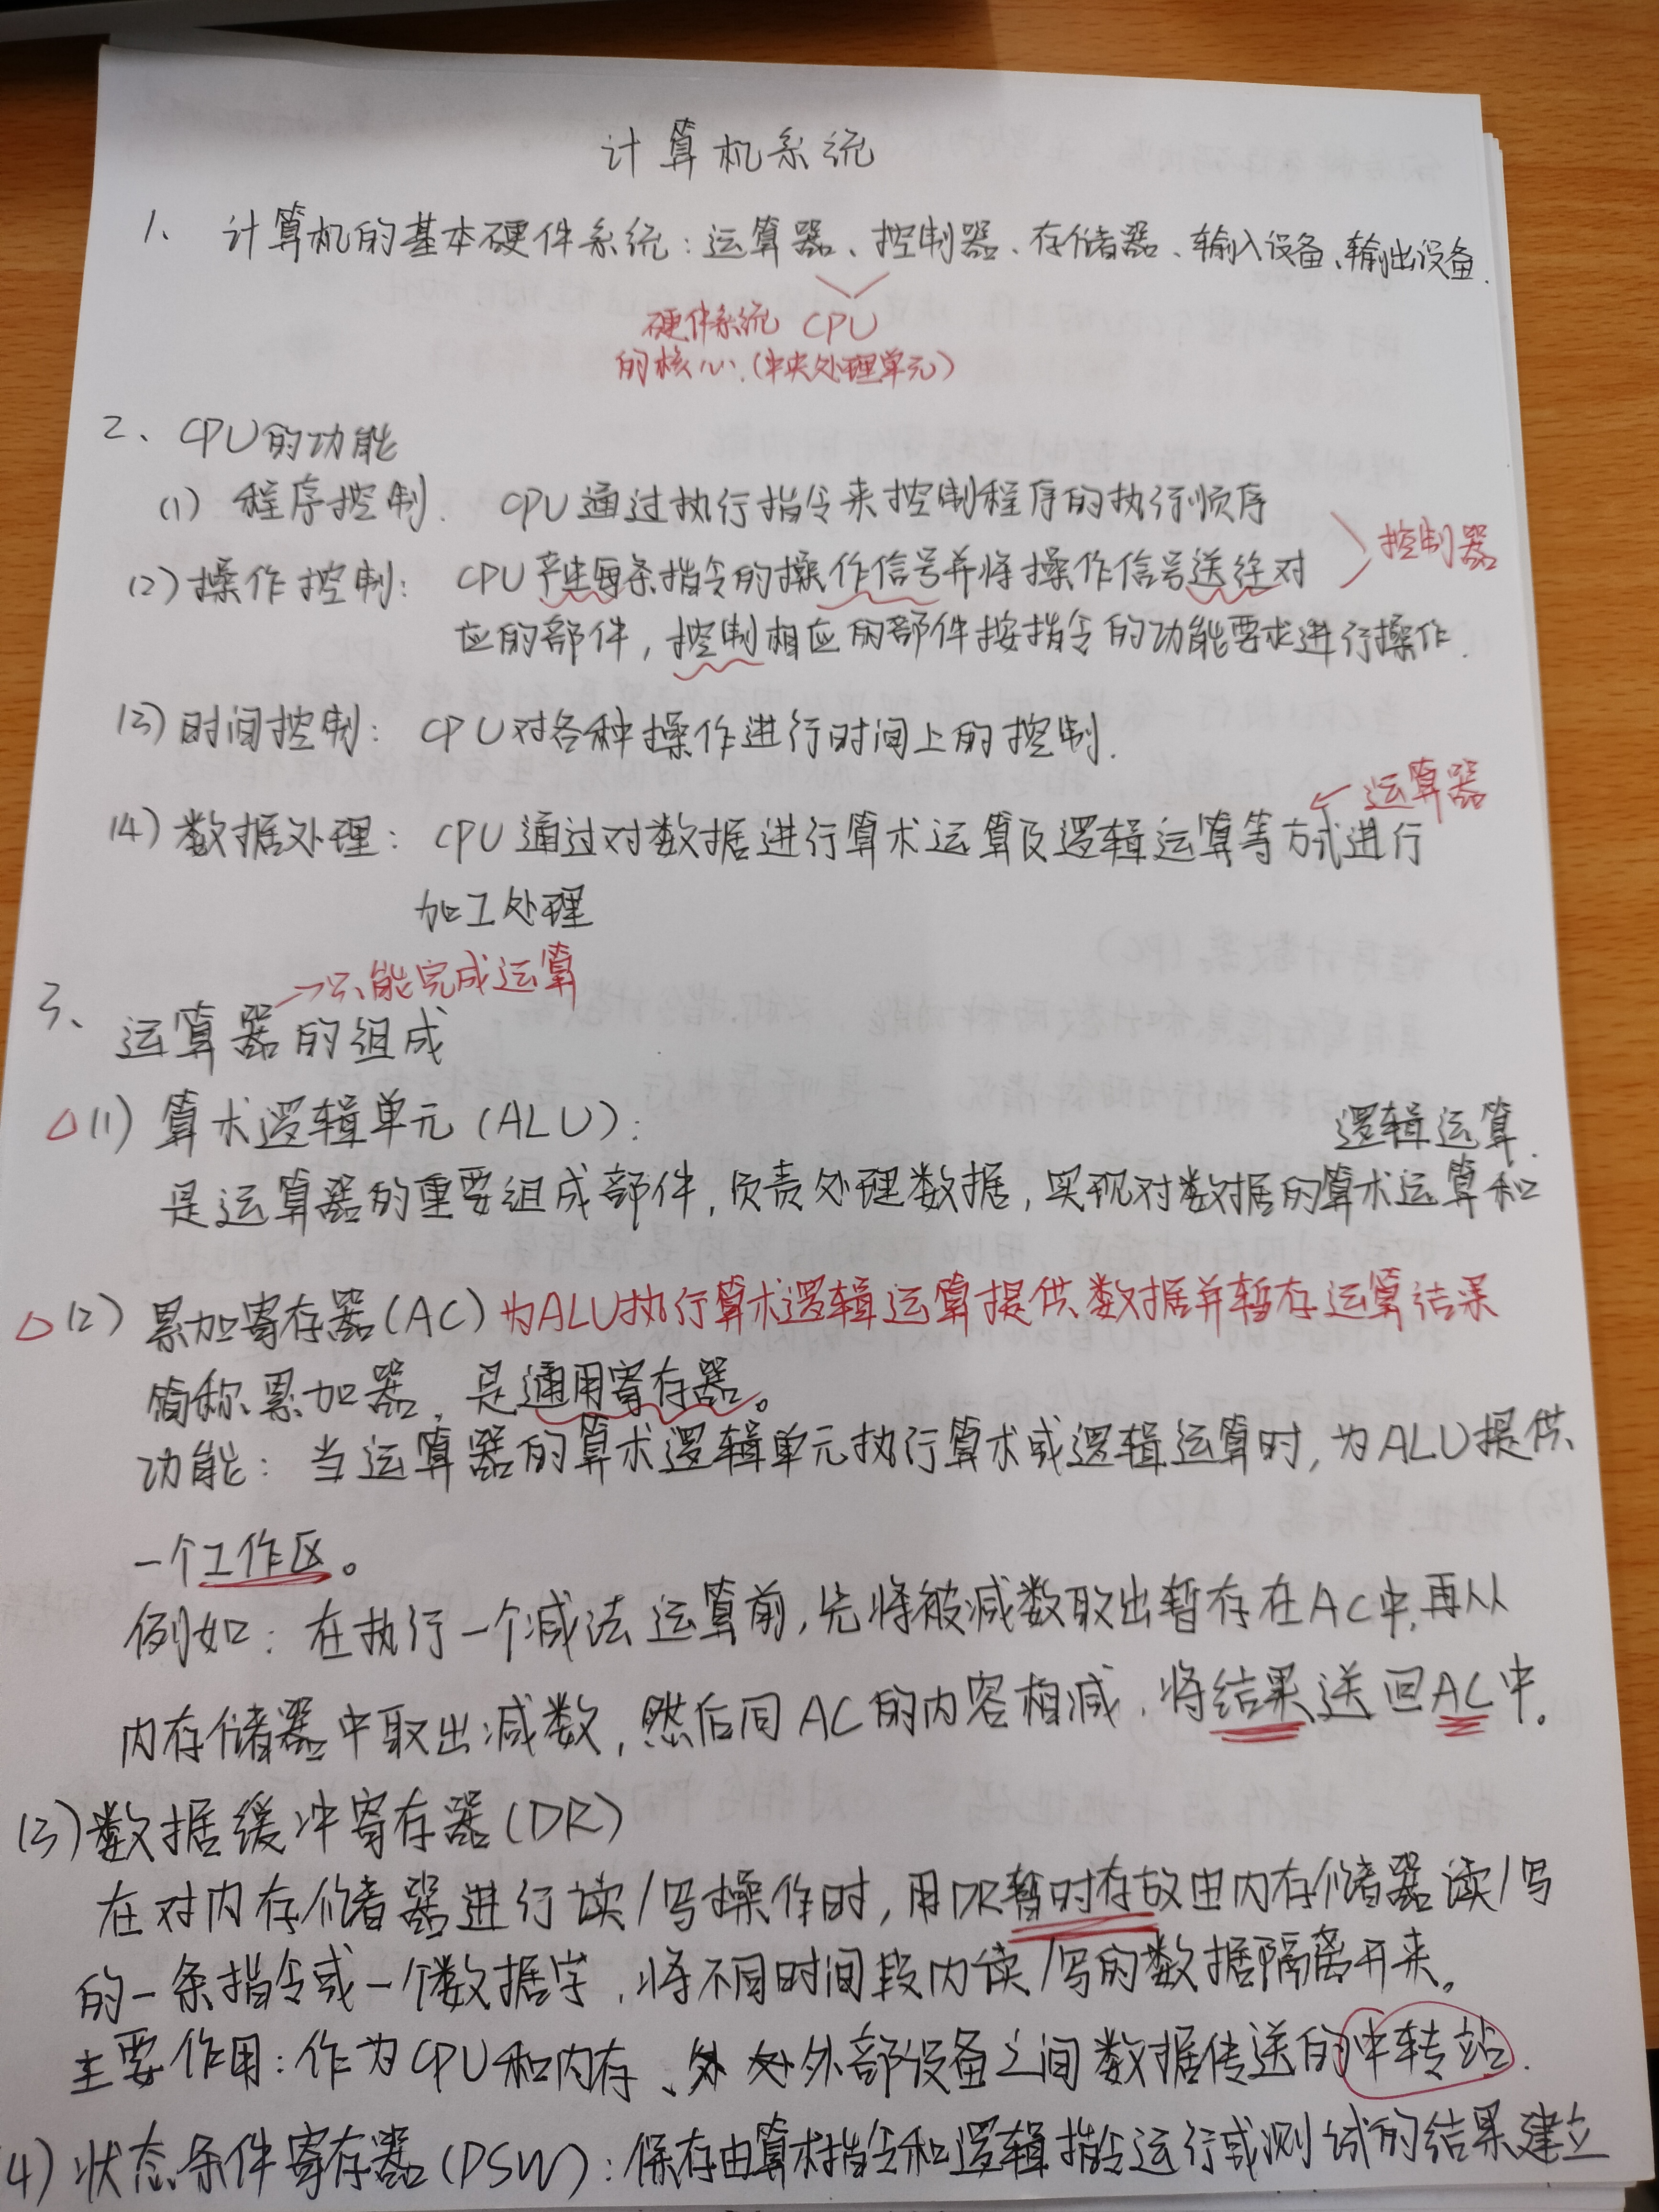 计算机系统
1、计算机的基本硬件系统：运算器、控制器、存储器、输入设备、输出设备.
硬件系统 CPU
的核心.(中央处理单元)
2、CPU的功能
(1) 程序控制. CPU通过执行指令来控制程序的执行顺序
控制器
(2) 操作控制: CPU产生每条指令的操作信号并将操作信号送往对
应的部件, 控制相应的部件按指令的功能要求进行操作.
(3) 时间控制: CPU对各种操作进行时间上的控制.
← 运算器
(4) 数据处理: CPU通过对数据进行算术运算及逻辑运算等方式进行
加工处理
→只能完成运算
3、运算器的组成
△(1) 算术逻辑单元(ALU):
逻辑运算.
是运算器的重要组成部件, 负责处理数据, 实现对数据的算术运算和
△(2) 累加寄存器(AC) 为ALU执行算术逻辑运算提供数据并暂存运算结果
简称累加器, 是通用寄存器。
功能: 当运算器的算术逻辑单元执行算术或逻辑运算时, 为ALU提供
一个工作区。
例如: 在执行一个减法运算前, 先将被减数取出暂存在AC中, 再从
内存储器中取出减数, 然后同AC的内容相减, 将结果送回AC中。
(3) 数据缓冲寄存器(DR)
在对内存储器进行读/写操作时, 用DR暂时存放由内存储器读/写
的一条指令或一个数据字, 将不同时间段内读/写的数据隔离开来。
主要作用: 作为CPU和内存、外部设备之间数据传送的中转站.
(4) 状态条件寄存器(PSW): 保存由算术指令和逻辑指令运行或测试的结果建立